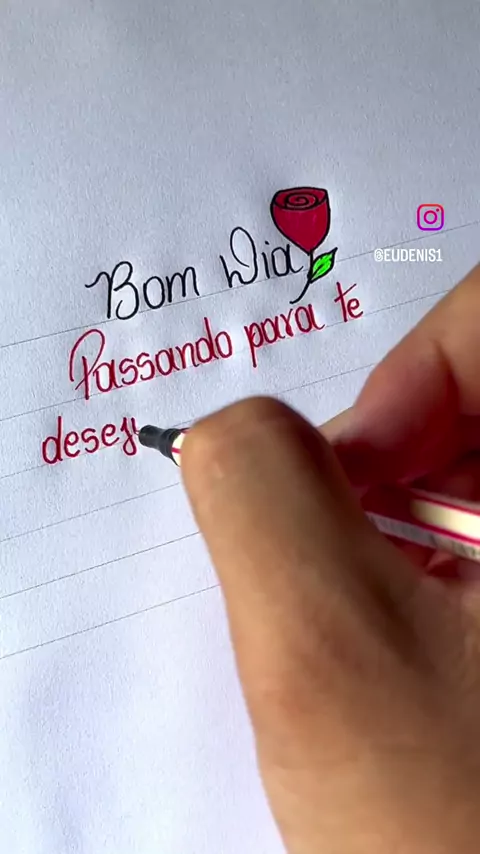 Bom Dia
@EUDENIS1
Passando para te
desej